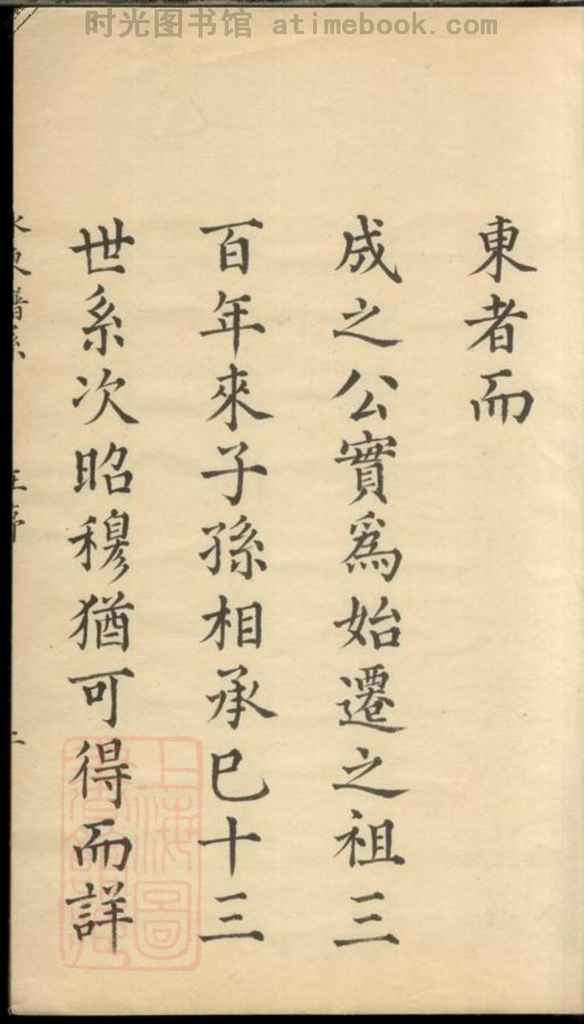 时光图书馆 atimebook.com
東者而
成之公實爲始遷之祖三
百年來子孫相承巳十三
世系次昭穆猶可得而詳
上海圖